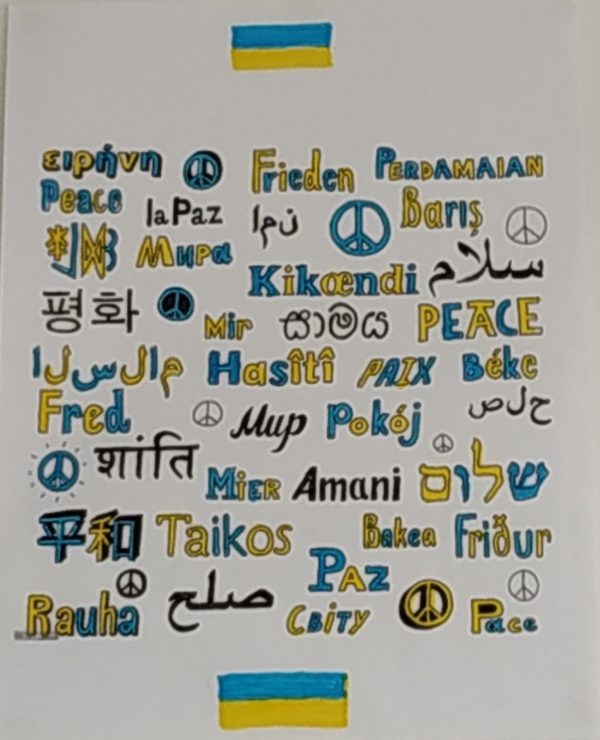 ειρήνη Frieden PERDAMAIAN
Peace la Paz امن Barış
Мира Kikœndi سلام
평화 Mir සාමය PEACE
السلام Hasîtî PAIX Béke
Fred Мир Pokój حلص
शांति MiER Amani שלום
平和 Taikos Bakea Friður
Rauha صلح PAZ СВіТУ Pace